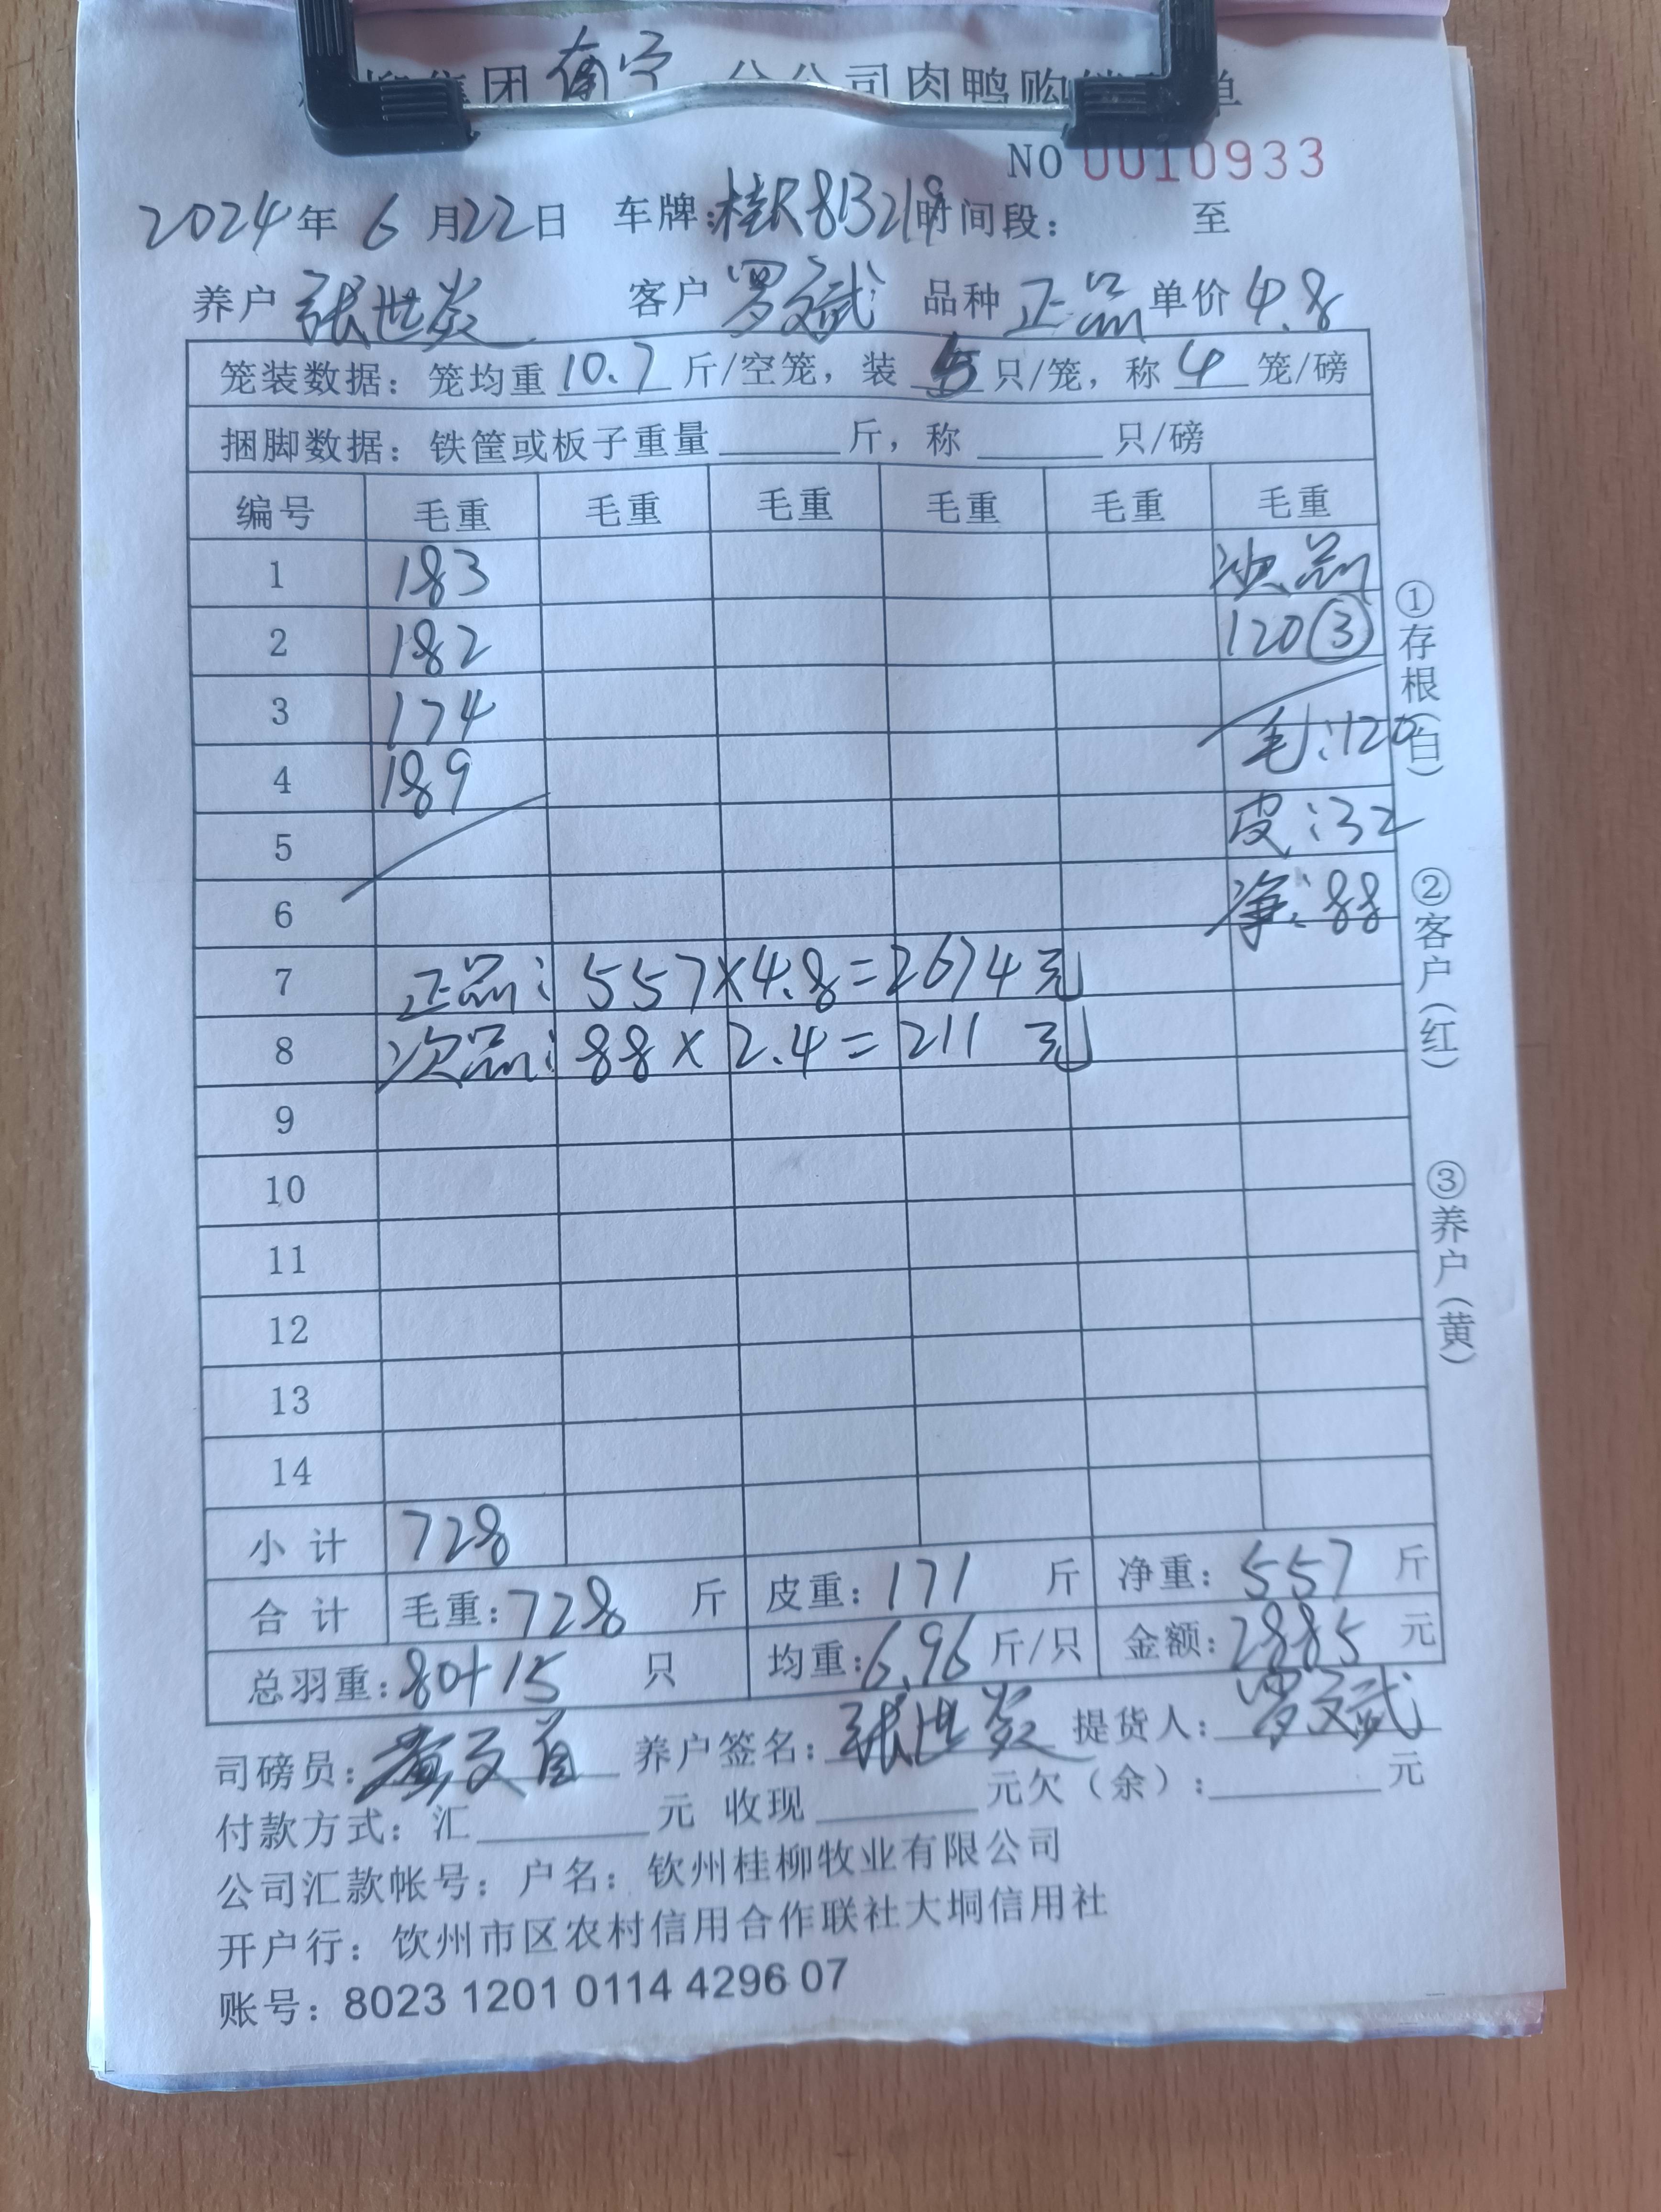 集团南宁分公司肉鸭购销单
NO 0010933
2024年6月22日 车牌:桂R8B219时间段: 至
养户张世炎 客户罗文斌 品种正品单价4.8
笼装数据:笼均重10.7斤/空笼,装5只/笼,称4笼/磅
捆脚数据:铁筐或板子重量 斤,称 只/磅
编号 毛重 毛重 毛重 毛重 毛重 毛重
1 183 次品
2 182 120③
3 174 毛:120
4 189
5 皮:32
6 净:88
7 正品:557×4.8=2674元
8 次品:88×2.4=211元
9
10
11
12
13
14
小计 728
合计 毛重:728斤 皮重:171斤 净重:557斤
总羽重:80+15只 均重:6.96斤/只 金额:2885元
司磅员:黄文 养户签名:张世炎 提货人:罗文斌
付款方式:汇 元 收现 元欠(余): 元
公司汇款帐号:户名:钦州桂柳牧业有限公司
开户行:钦州市区农村信用合作联社大垌信用社
账号:8023 1201 0114 4296 07
①存根(白)
②客户(红)
③养户(黄)